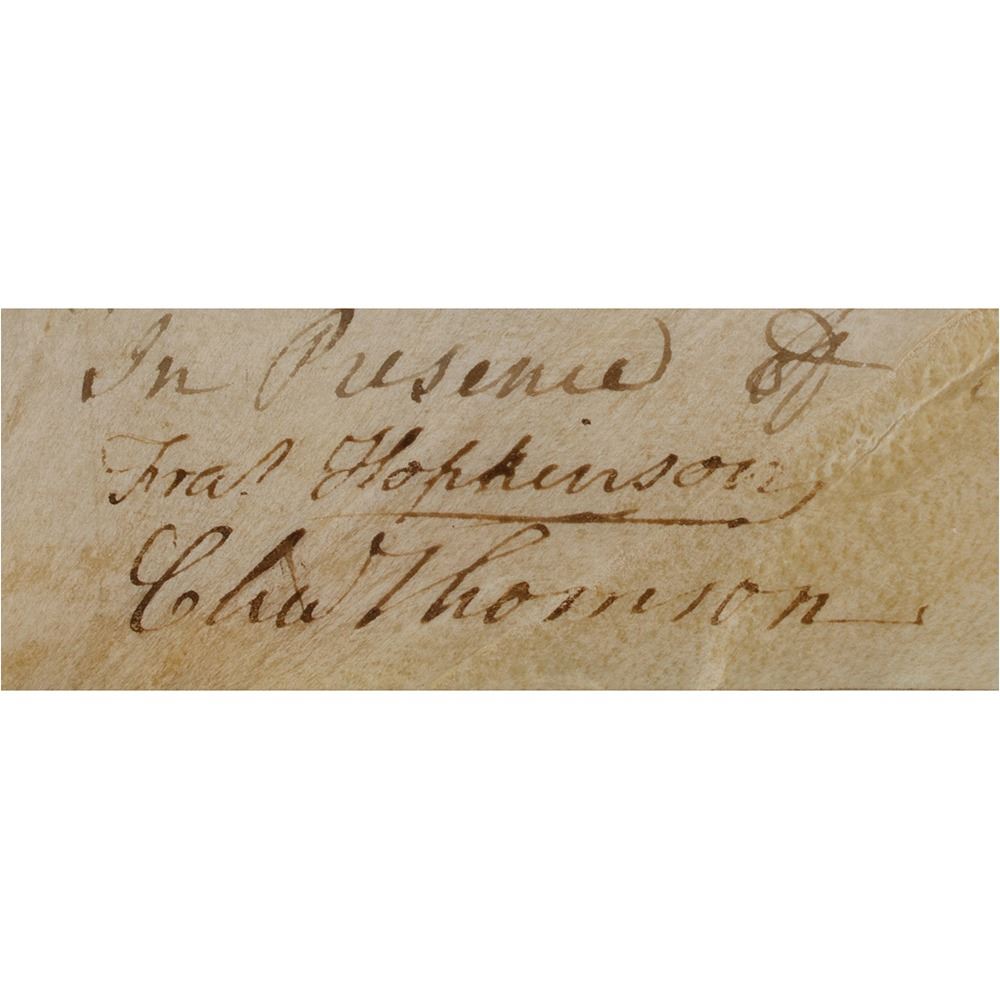 In Presence of
Fras Hopkinson
Chas Thomson